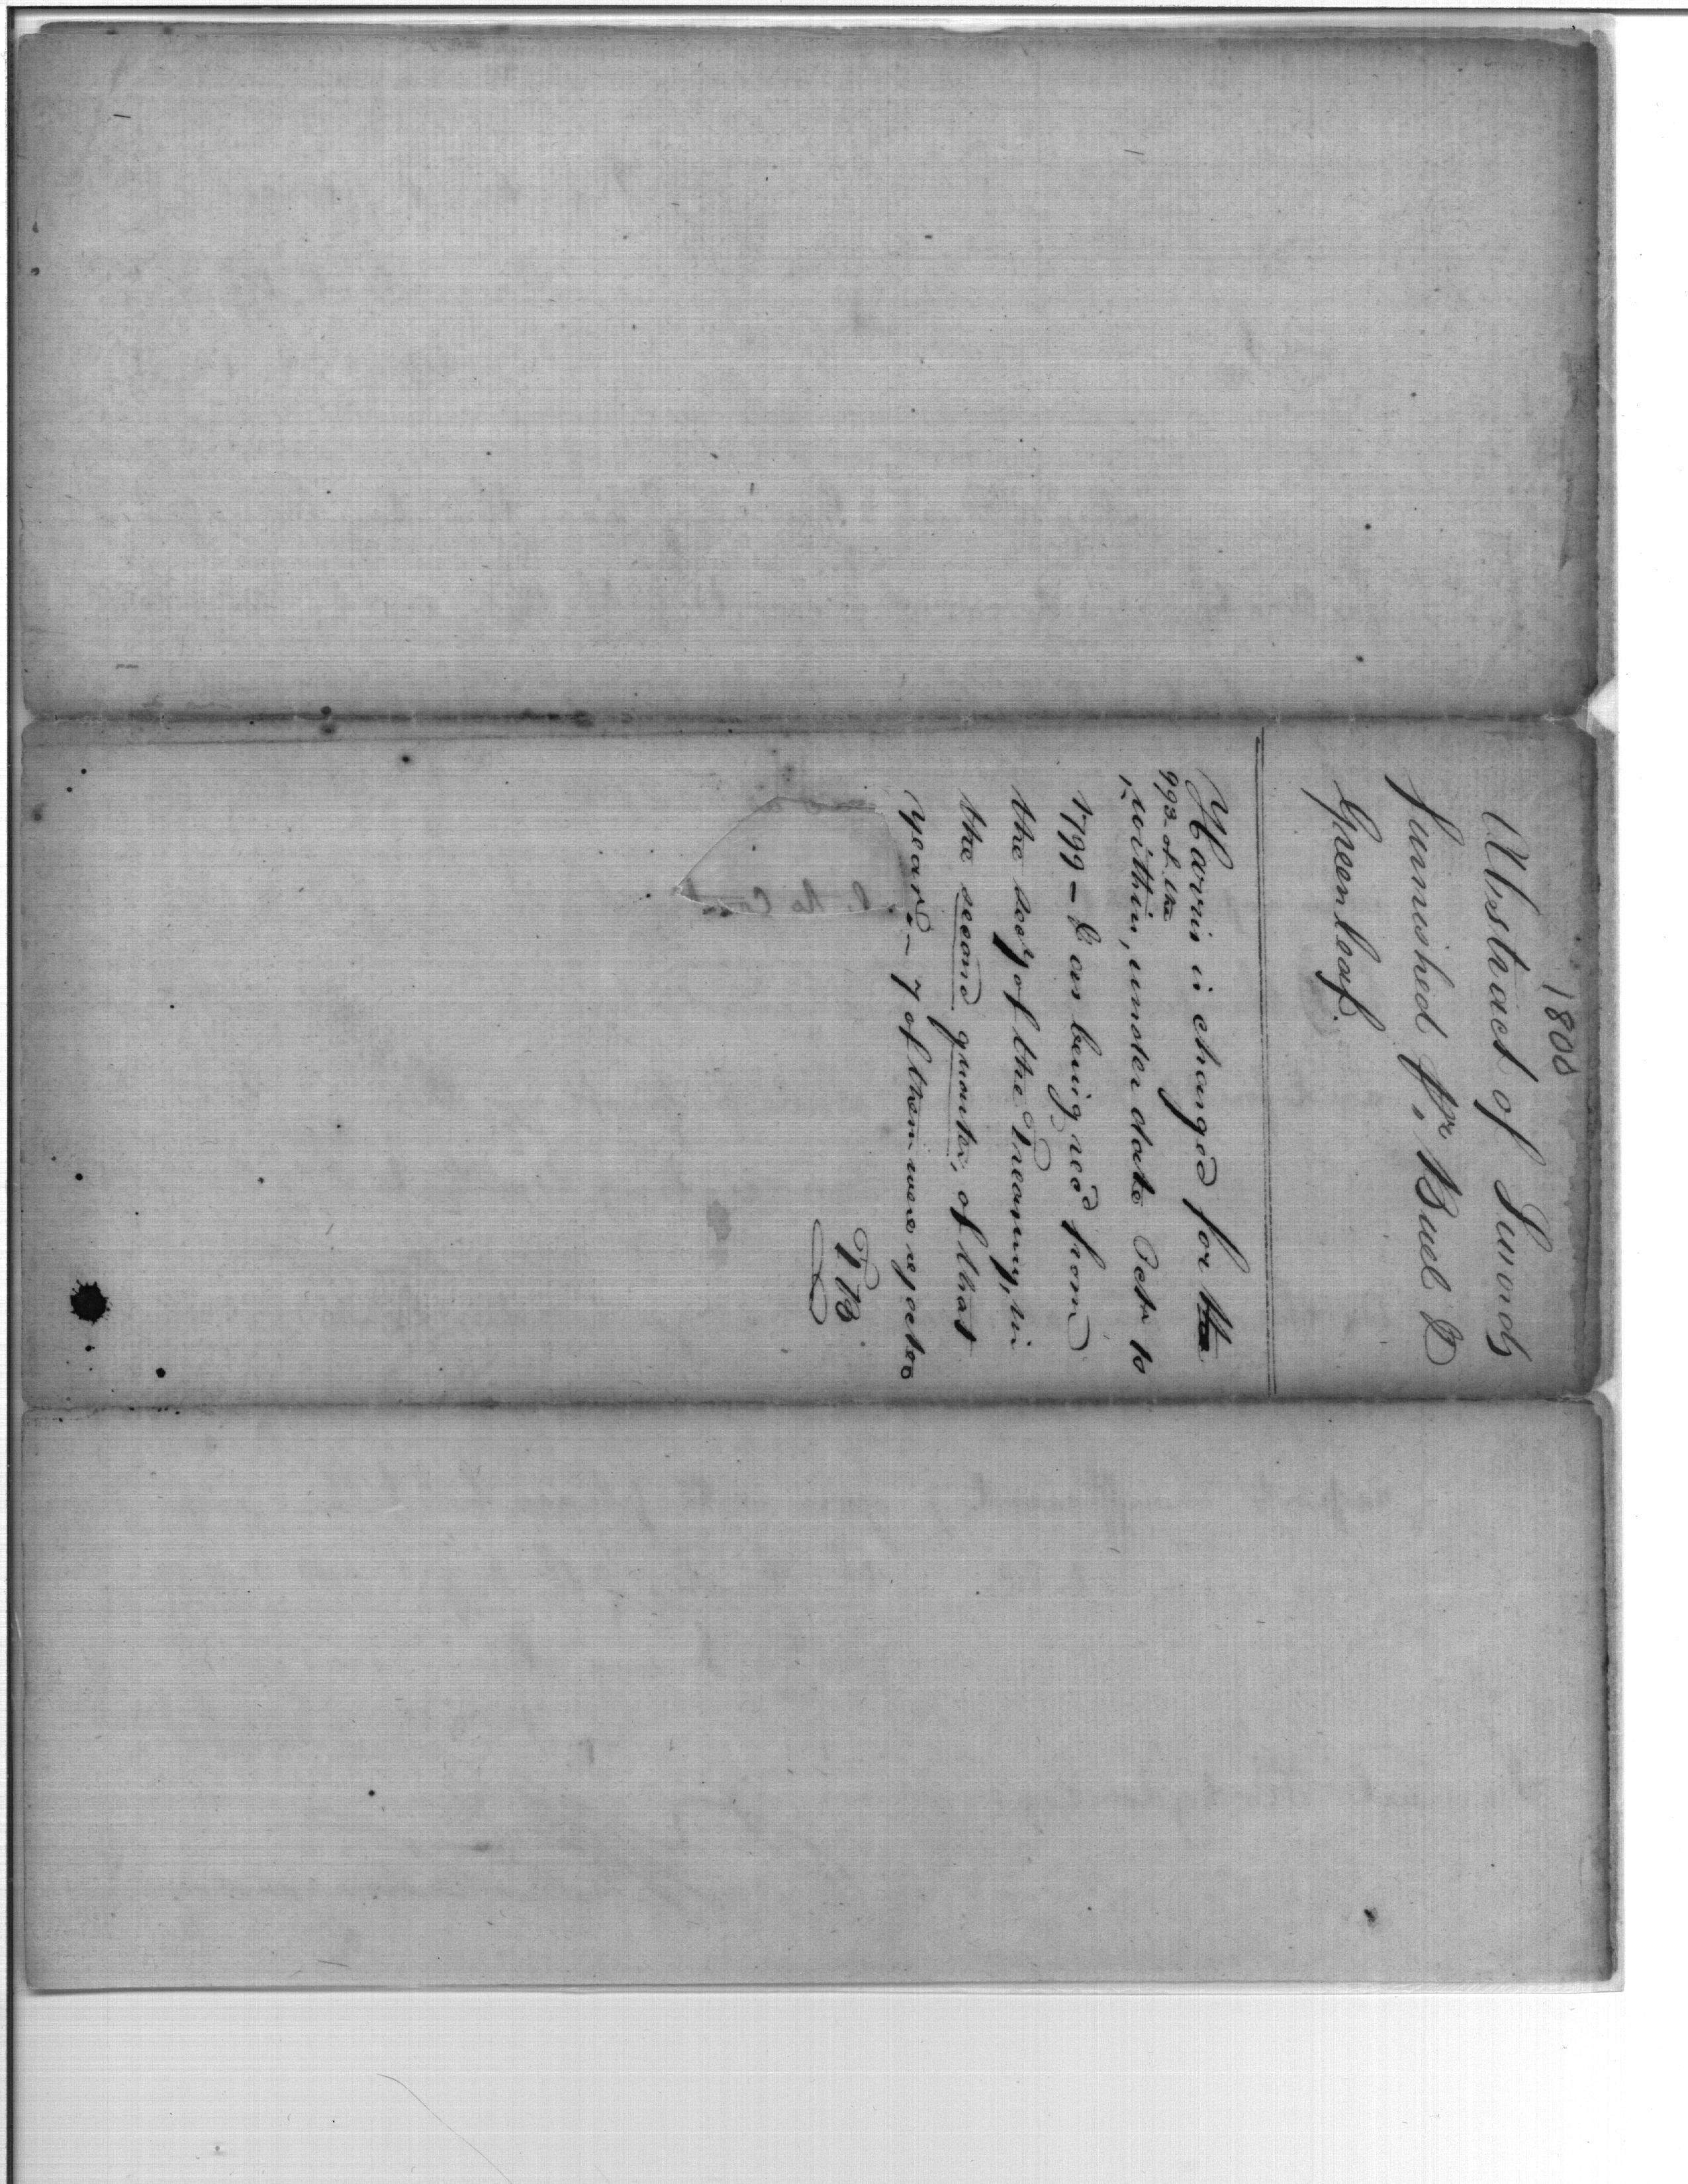 1800
Abstract of Swords
furnished pr. Buel &
Greenleaf.
Harris is charged for the
993 of the
within, under date Octr 10
1799 – & as being recd from
the secy of the Treasury, in
the second quarter, of that
year. – 7 of them were rejected
TB